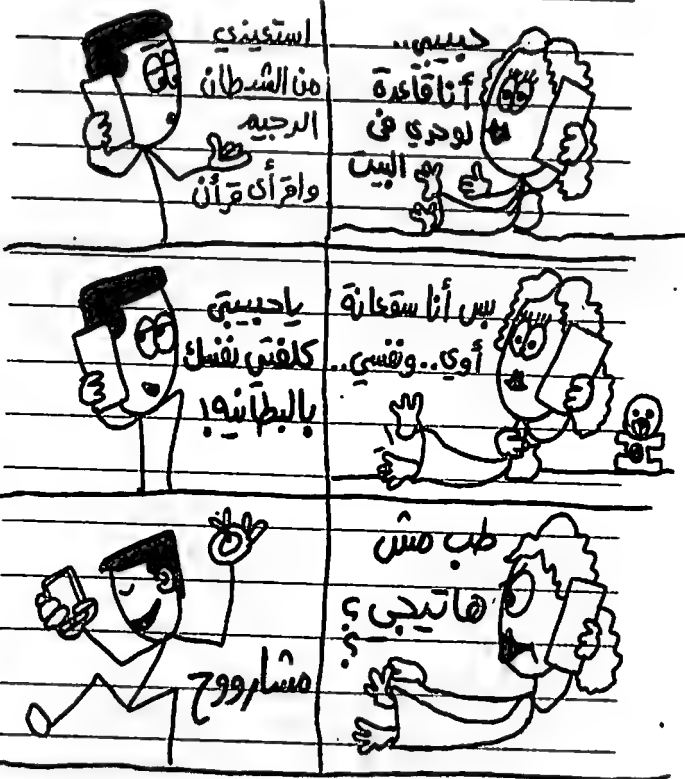 حبيبي..
أنا قاعدة
لوحدي في
البيت
استعيذي
من الشيطان
الرجيم
واقرأى قرأن
بس أنا سقعانة
أوي.. ونفسي..
ياحبيبتي
كلفتي نفسك
بالبطانيه!
طب مش
هاتيجي؟
؟
مشارووح